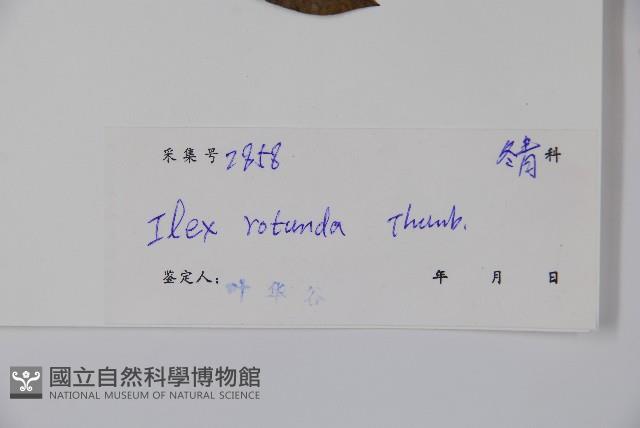 采集号 2858 冬青 科
Ilex rotunda Thunb.
鉴定人： 叶华谷 年 月 日
國立自然科學博物館
NATIONAL MUSEUM OF NATURAL SCIENCE